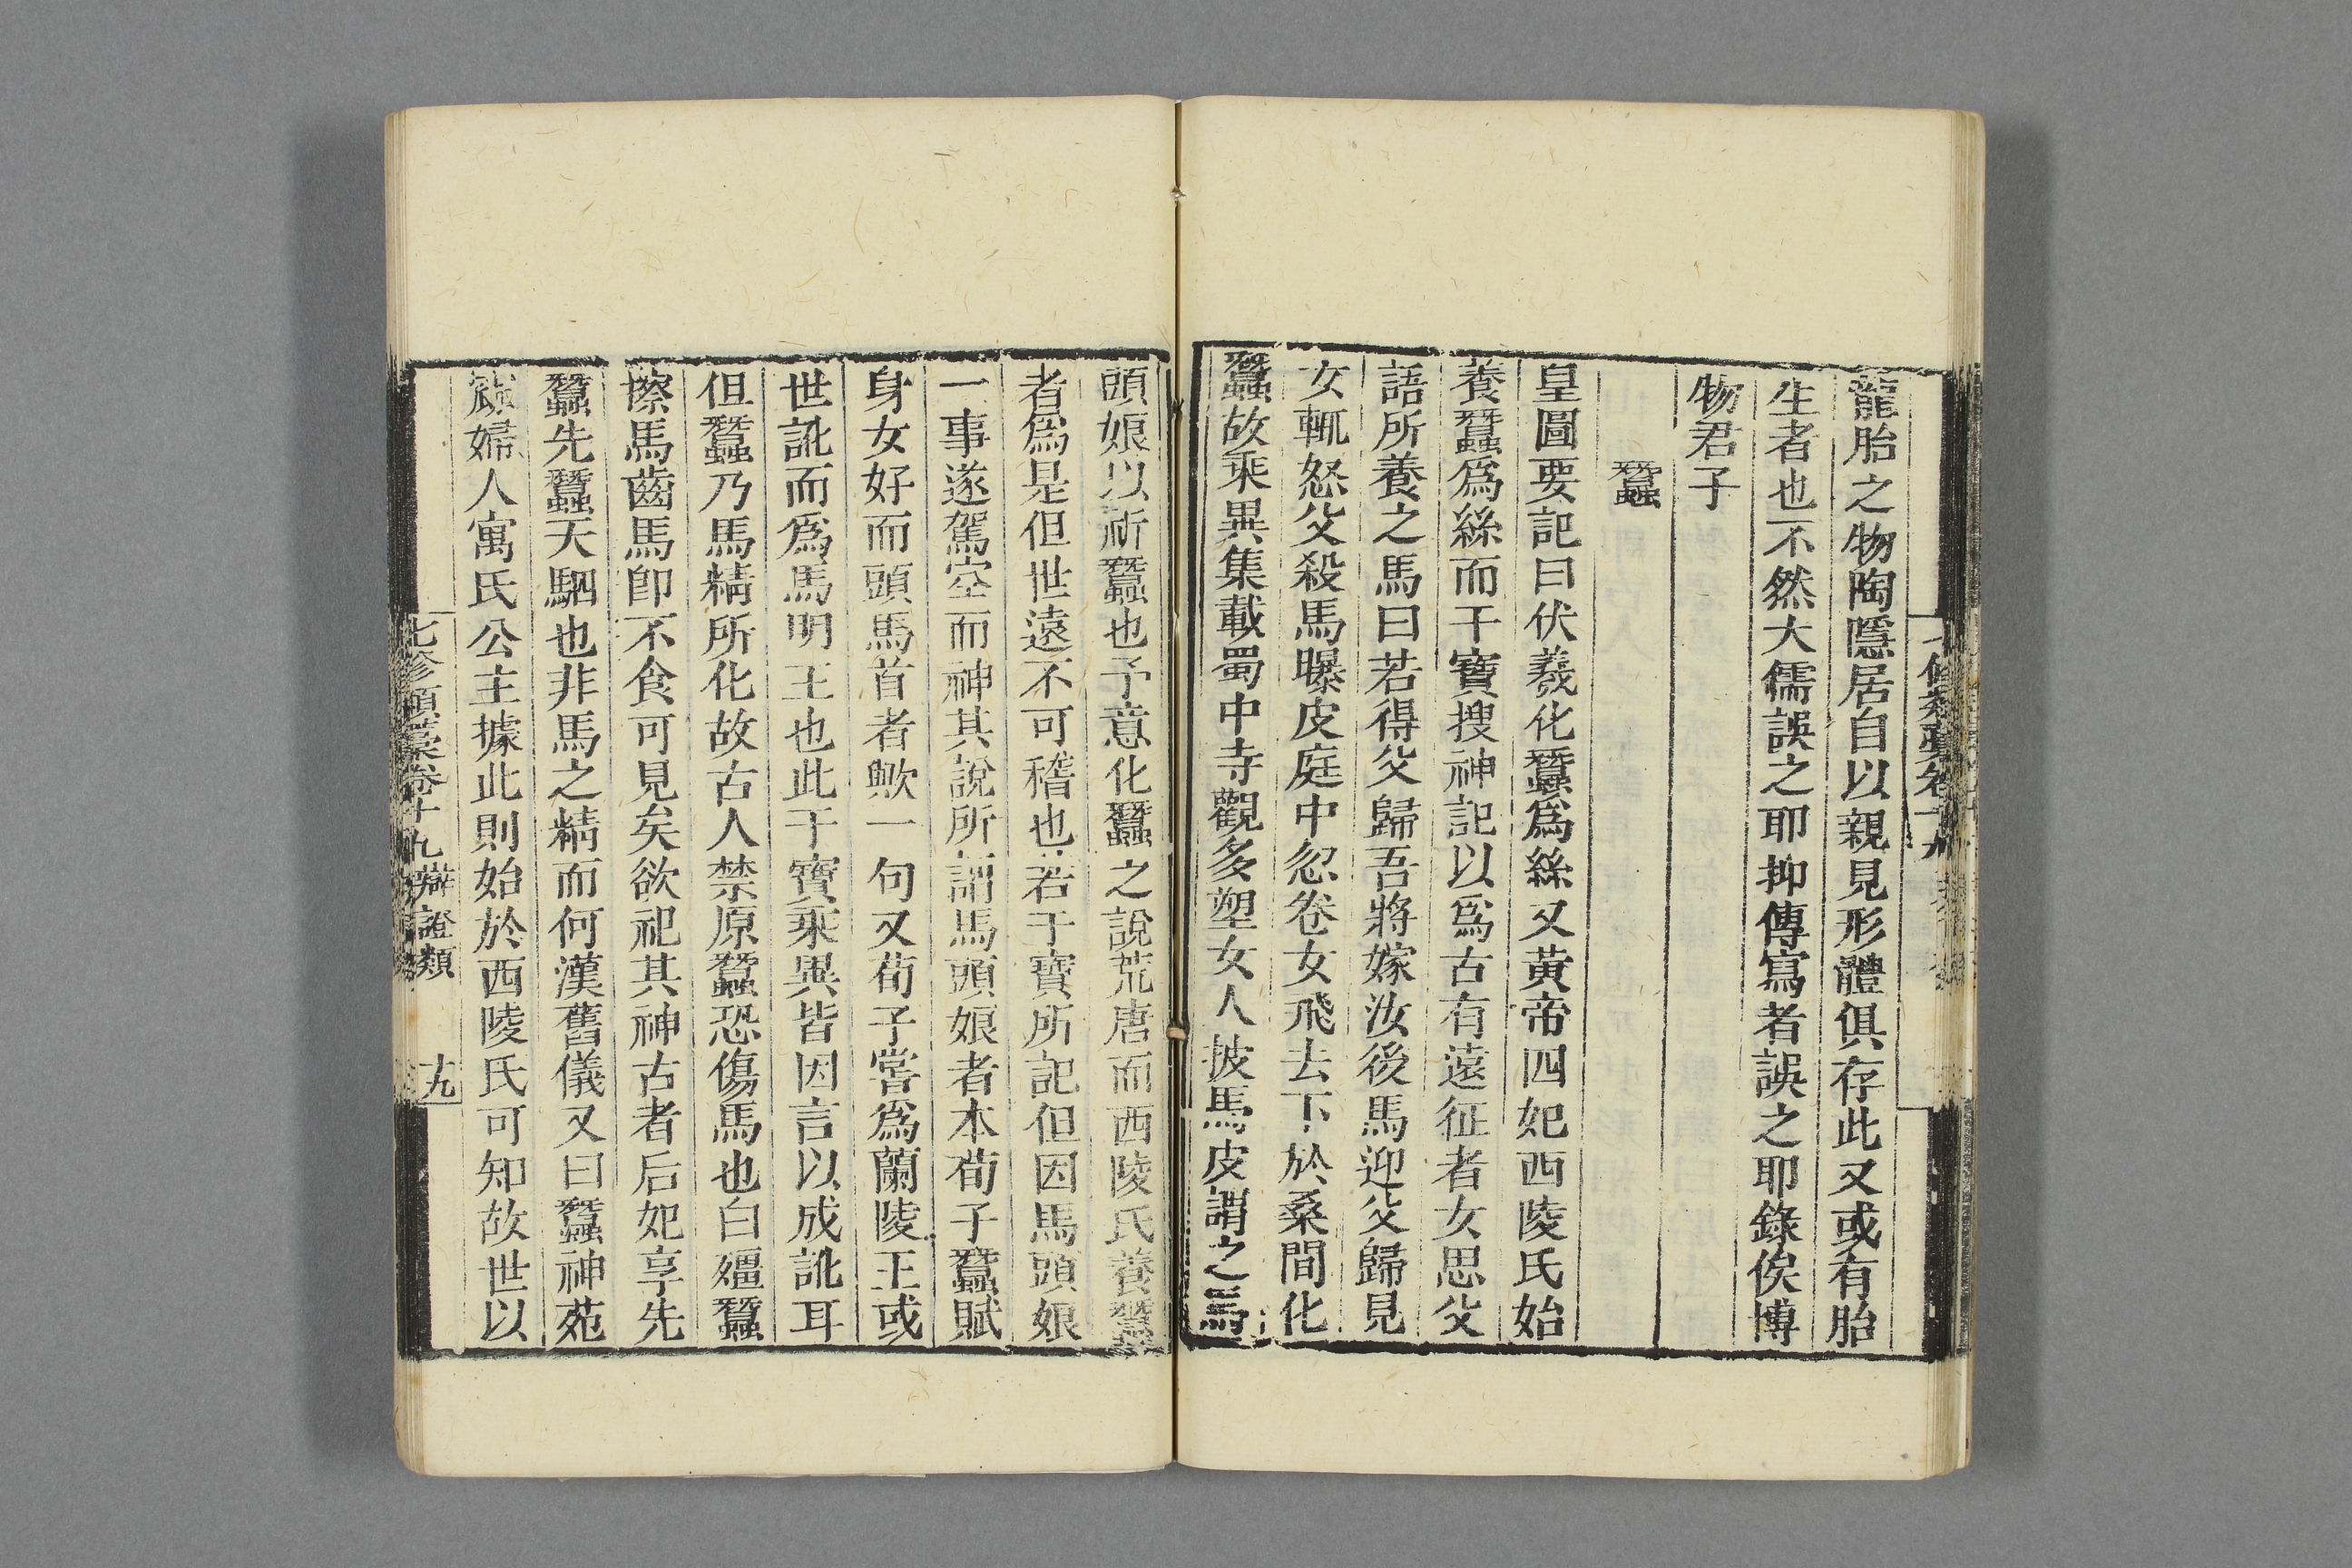 龍胎之物陶隱居自以親見形體俱存此又或有胎
生者也不然大儒誤之耶抑傳寫者誤之耶錄俟博
物君子
蠶
皇圖要記曰伏羲化蠶爲絲又黃帝四妃西陵氏始
養蠶爲絲而干寶搜神記以爲古有遠征者女思父
語所養之馬曰若得父歸吾將嫁汝後馬迎父歸見
女輒怒父殺馬曝皮庭中忽卷女飛去下於桑間化
蠶故乘異集載蜀中寺觀多塑女人披馬皮謂之馬
頭娘以祈蠶也予意化蠶之說荒唐而西陵氏養蠶
者爲是但世遠不可稽也若干寶所記但因馬頭娘
一事遂駕空而神其說所謂馬頭娘者本荀子蠶賦
身女好而頭馬首者歟一句又荀子嘗爲蘭陵王或
世訛而爲馬明王也此干寶乘異皆因言以成訛耳
但蠶乃馬精所化故古人禁原蠶恐傷馬也白殭蠶
擦馬齒馬卽不食可見矣欲祀其神古者后妃享先
蠶先蠶天駟也非馬之精而何漢舊儀又曰蠶神苑
窳婦人寓氏公主據此則始於西陵氏可知故世以
七修類藁卷十九 辯證類 十九